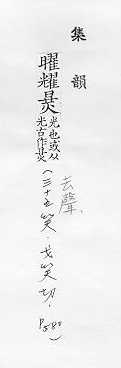 集韻
去聲
曜耀
光也或从
光古作
(三十五笑.弋笑切. P580)